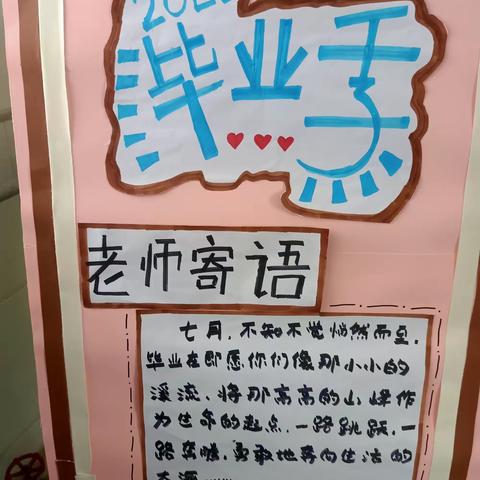 毕业季
老师寄语
七月,不知不觉悄然而至,
毕业在即愿你们像那小小的
溪流,将那高高的山峰作
为生命的起点,一路跳跃,一
路奔腾,勇敢地奔向生活的
大海……